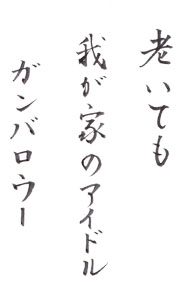 老いても
我が家のアイドル
ガンバロウー